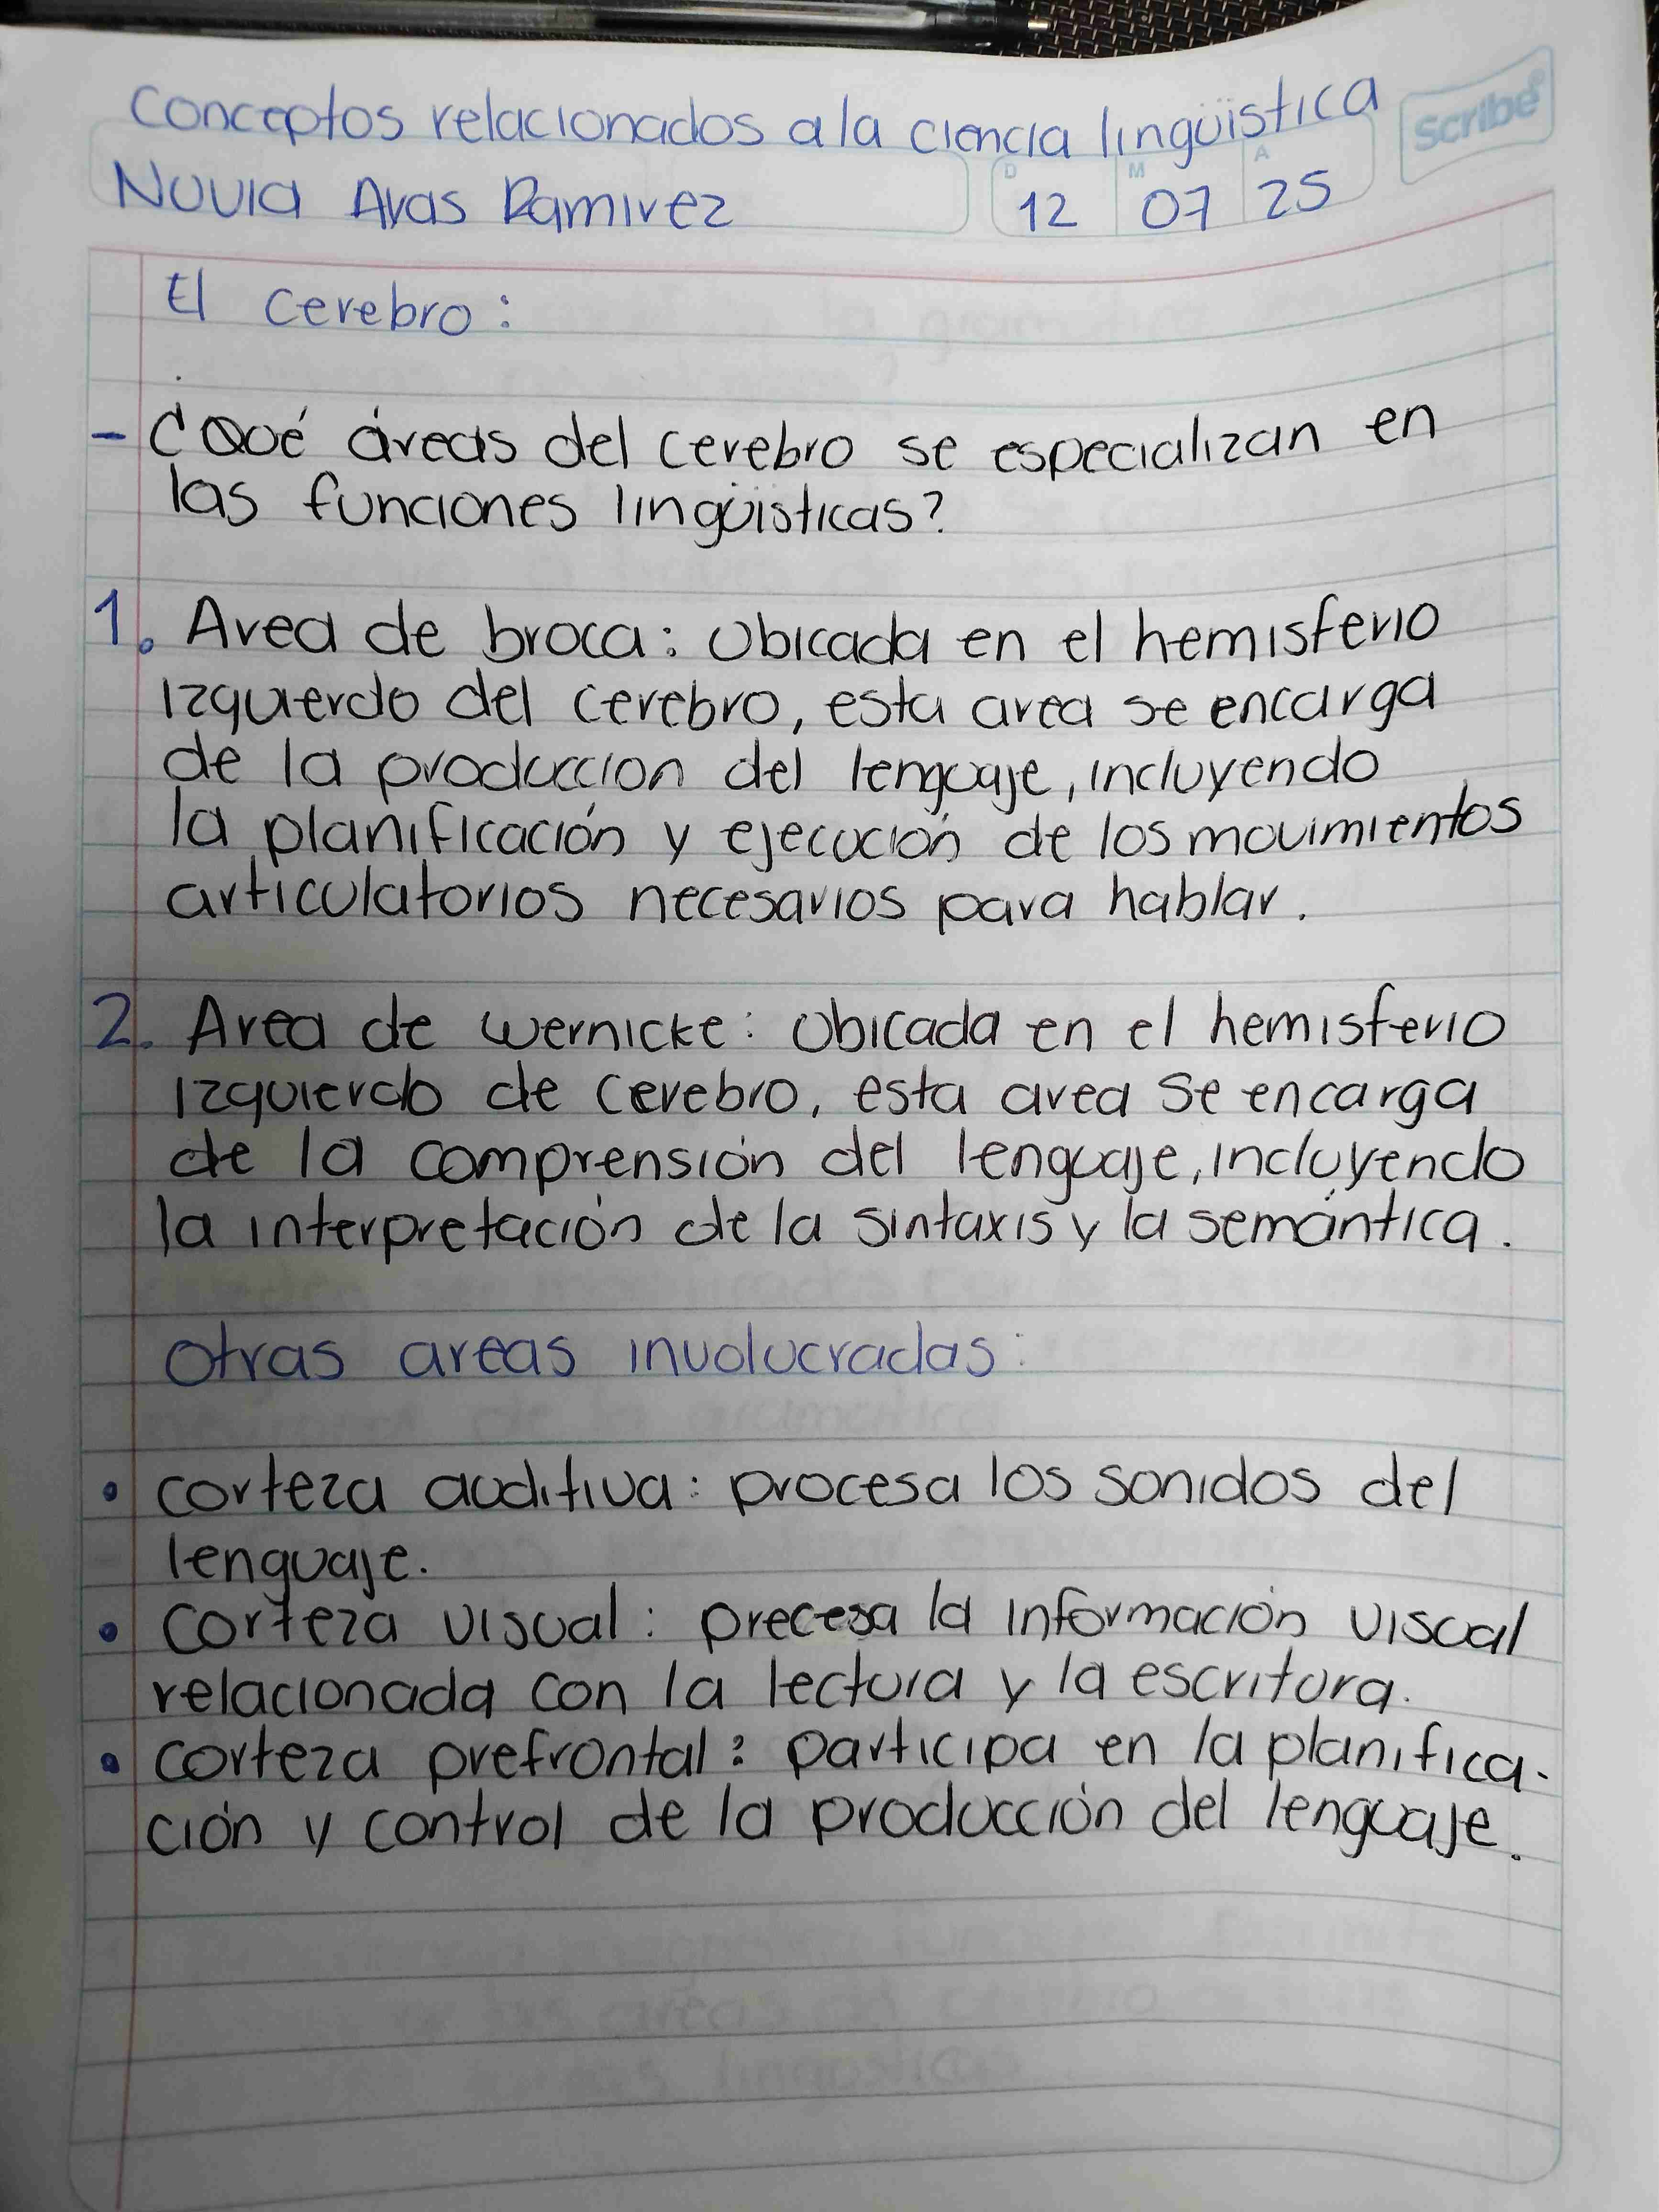 Conceptos relacionados a la ciencia lingüistica
Scribe
D M A
Nuvia Aras Ramirez 12 07 25
El cerebro:
- ¿Qué áreas del cerebro se especializan en
las funciones lingüisticas?
1. Area de broca: Ubicada en el hemisferio
izquierdo del cerebro, esta area se encarga
de la produccion del lenguaje, incluyendo
la planificación y ejecución de los movimientos
articulatorios necesarios para hablar.
2. Area de wernicke: Ubicada en el hemisferio
izquierdo de cerebro, esta area se encarga
de la comprensión del lenguaje, incluyendo
la interpretación de la sintaxis y la semántica.
Otras areas involucradas:
• corteza auditiva: procesa los sonidos del
lenguaje.
• corteza visual: precesa la información visual
relacionada con la lectura y la escritura.
• corteza prefrontal: participa en la planifica-
ción y control de la producción del lenguaje.